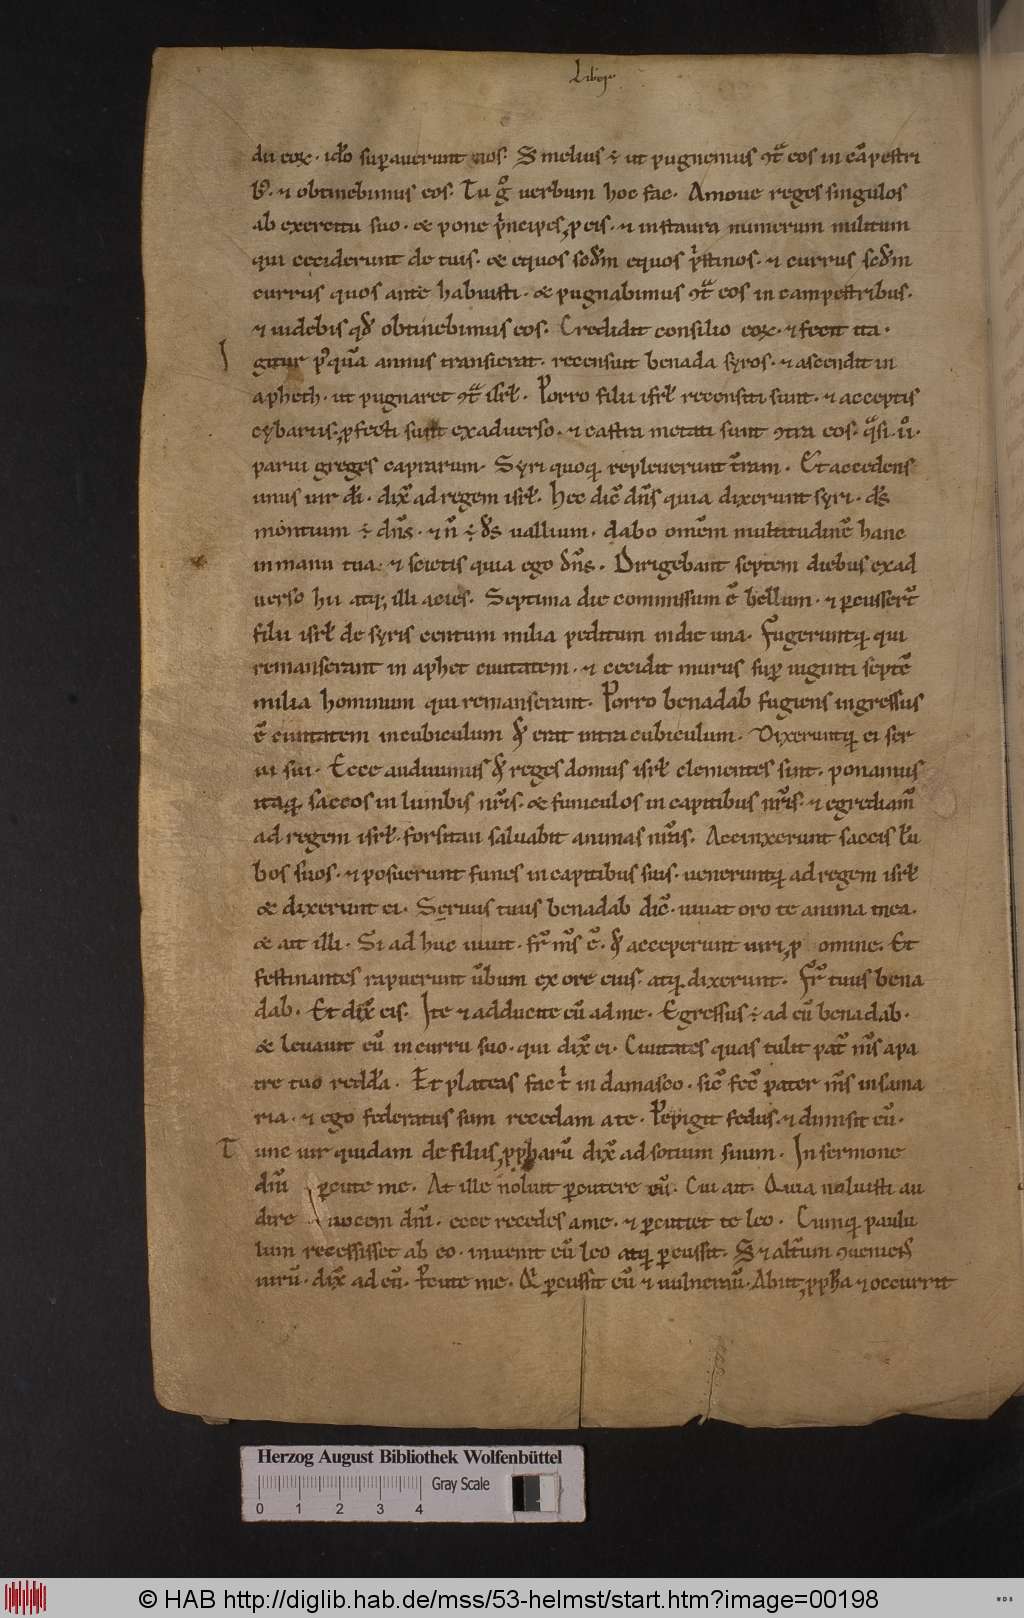 Liber
dii eoꝝ · ido suꝑauerunt nos · S; melius ÷ ut pugnemus ↄt̃ eos in cãpestri
bꝰ · ⁊ obtinebimus eos · Tu gͦ uerbum hoc fac · Amoue reges singulos
ab exercitu suo · & pone pͥncipes ꝓ eis · ⁊ instaura numerum militum
qui ceciderunt de tuis · & equos scđm equos pͥstinos · ⁊ currus scđm
currus quos ante habuisti · & pugnabimus ↄt̃ eos in campestribus ·
⁊ uidebis qđ obtinebimus eos · Credidit consilio eoꝝ · ⁊ fecit ita ·
I gitur pꝰquã annus transierat · recensuit benada syros · ⁊ ascendit in
apheth · ut pugnaret ↄt̃ isrł · Porro filii isrł recensiti sunt · ⁊ acceptis
cybariis · ꝓfecti sunt exaduerso · ⁊ castra metati sunt ↄtra eos · qͣsi · iiͦ ·
parui greges caprarum · Syri quoq; repleuerunt t̃ram · Et accedens
unus uir di · dix̃ ad regem isrł · Hec dic̃ dñs quia dixerunt syri · đs
montium ÷ dñs · ⁊ ñ ÷ đs uallium · dabo omẽm multitudinẽ hanc
in manu tua · ⁊ scietis quia ego dñs · Dirigebant septem diebus exad
uerso hii atq; illi acies · Septima die commissum ẽ bellum · ⁊ ꝑcusser̃t
filii isrł de syris centum milia peditum in die una · Fugeruntq; qui
remanserant in aphec ciuitatem · ⁊ cecidit murus suꝑ uiginti septẽ
milia hominum qui remanserant · Porro benadab fugiens ingressus
ẽ ciuitatem in cubiculum qđ erat intra cubiculum · Dixeruntq; ei ser
ui sui · Ecce audiuimus qđ reges domus isrł clementes sint · ponamus
itaq; saccos in lumbis nr̃is · & funiculos in capitibus nr̃is · ⁊ egrediam̃
ad regem isrł · forsitan saluabit animas nr̃as · Accinxerunt saccis lũ
bos suos · ⁊ posuerunt funes in capitibus suis · ueneruntq; ad regem isrł
& dixerunt ei · Seruus tuus benadab dic̃ · uiuat oro te anima mea ·
& ait illi · Si adhuc uiuit · fr̃ m̃s ẽ · qđ acceperunt uiri ꝓ omine · Et
festinantes rapuerunt ũbum ex ore eius · atq; dixerunt · Fr̃ tuus bena
dab · Et dix̃ eis · Ite ⁊ adducite eũ ad me · Egressus ÷ ad eũ benadab ·
& leuauit eũ in curru suo · qui dix̃ ei · Ciuitates quas tulit pat̃ m̃s a pa
tre tuo reddã · Et plateas fac tͥ in damasco · sic̃ fec̃ pater m̃s in sama
ria · ⁊ ego federatus sum recedam a te · Pepigit fedus · ⁊ dimisit eũ ·
T unc uir quidam de filiis ꝓphar̃u dix̃ ad sotium suum · In sermone
dñi ꝑcute me · At ille noluit ꝑcutere eũ · Cui ait · Quia noluisti au
dire uocem dñi · ecce recedes a me · ⁊ ꝑcutiet te leo · Cumq; paulu
lum recessisset ab eo · inuenit eũ leo atq; ꝑcussit · S; ⁊ alt̃um ↄueniens
uirũ · dix̃ ad eũ · Ꝑcute me · Qͥ ꝑcussit eũ ⁊ uulnerau̾ · Abiit ꝓpha ⁊ occurrit
Herzog August Bibliothek Wolfenbüttel
Gray Scale
0 1 2 3 4
© HAB http://diglib.hab.de/mss/53-helmst/start.htm?image=00198